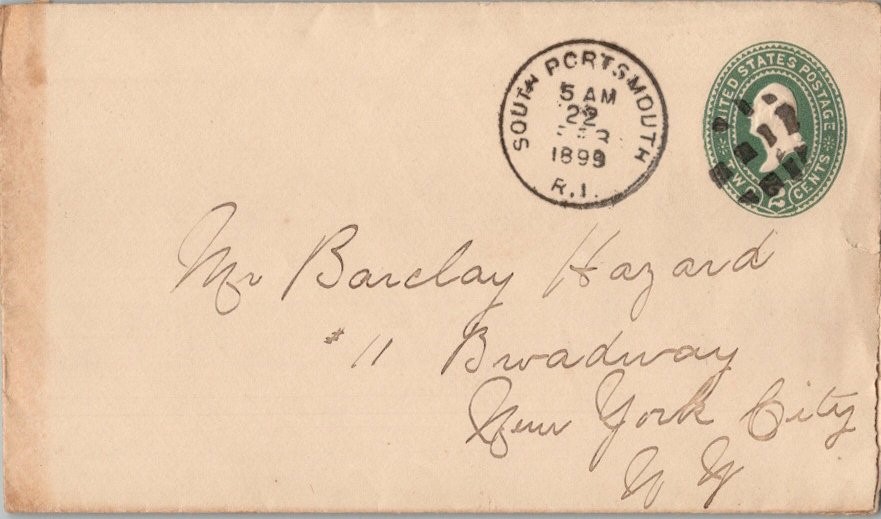 SOUTH PORTSMOUTH
5 AM
22
FEB
1899
R.I.
UNITED STATES POSTAGE
TWO 2 CENTS
Mr Barclay Hazard
#11 Broadway
New York City
N Y